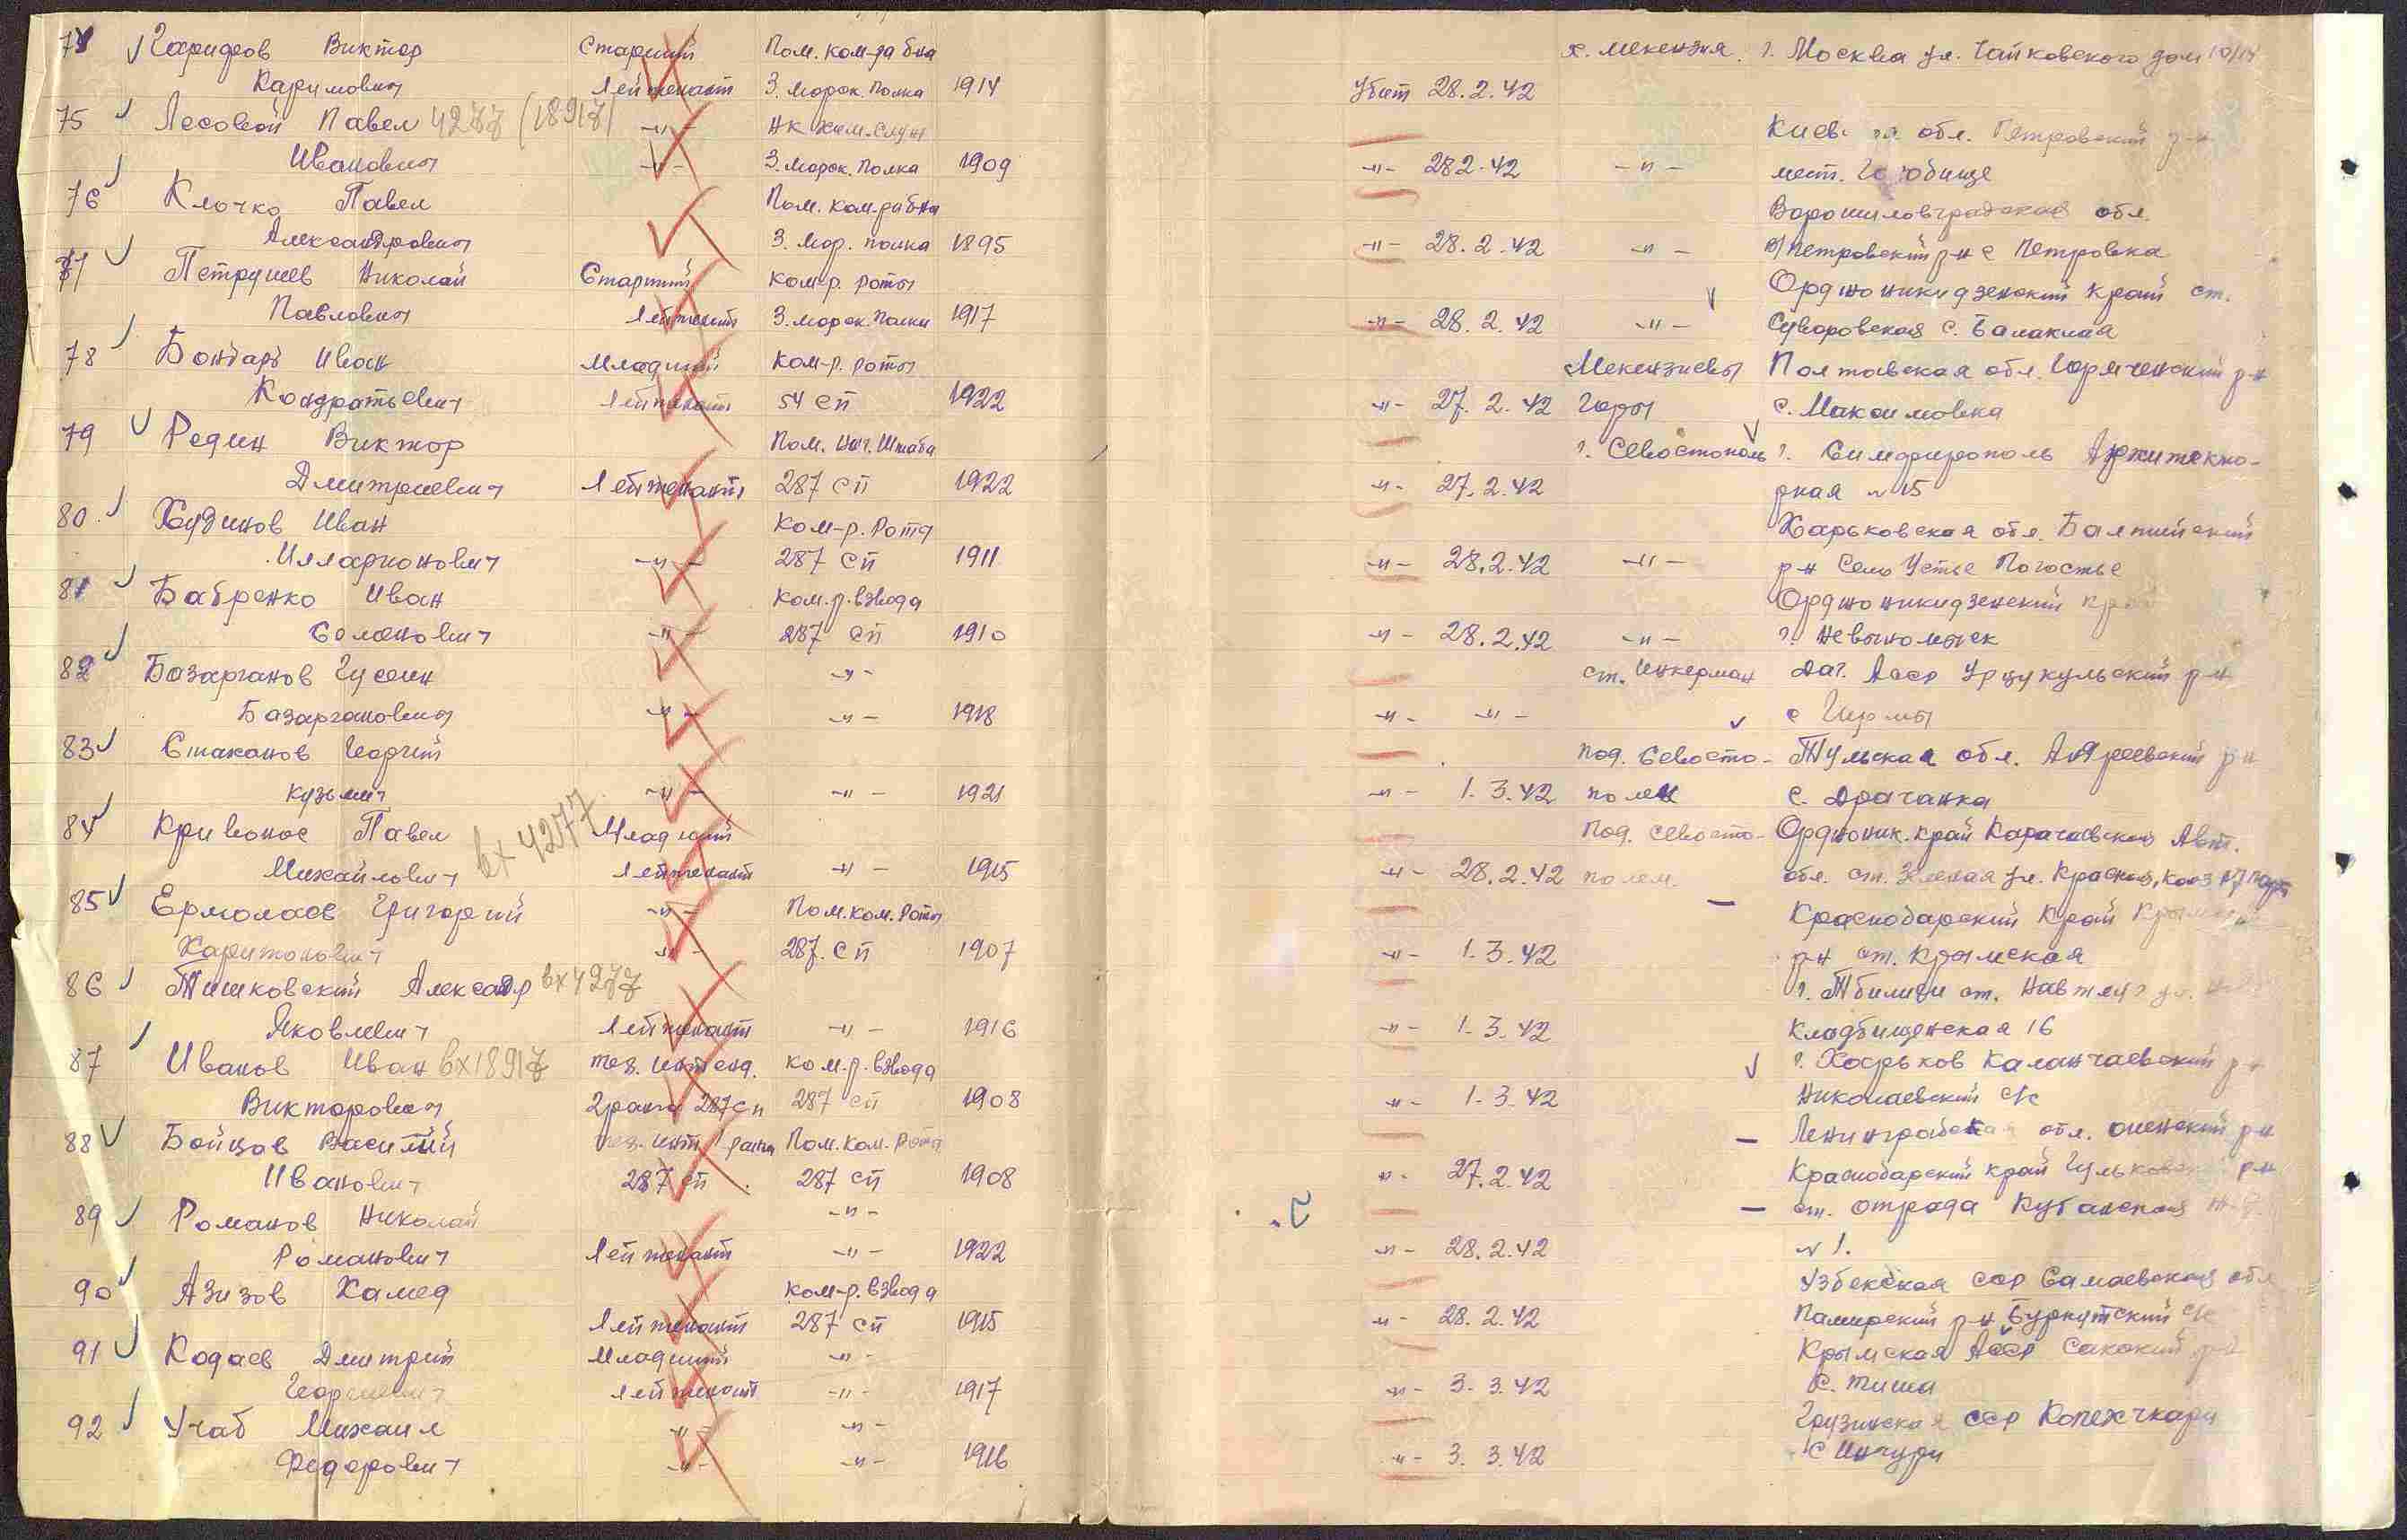 74 Гаридров Виктор Старший Пом. ком-ра б-на х. Мекензия. г. Москва ул. Чайковского дом 10/14
Каримович Лейтенант 3. Морск. Полка 1914 Убит 28.2.42
75 Лесовой Павел 4277 (18917) -"- НК Хим. Служ Киевская обл. Петровский р-н
Иванович -"- 3. Морск. Полка 1909 -"- 28.2.42 -"- мест.
76 Клочко Павел Пом. ком-ра б-на Ворошиловградская обл.
Александрович 3. Мор. полка 1895 -"- 28.2.42 -"- Петровский р-н с Петровка
77 Петрушев Николай Старший ком-р. роты Орджоникидзенский край ст.
Павлович Лейтенант 3. Морск. Полка 1917 -"- 28.2.42 -"- Суворовская с. Балаклая
78 Бондарь Иван Младший Ком-р. роты Мекензиевы Полтавская обл. р-н
Кондратьевич Лейтенант 54 СП 1922 -"- 27.2.42 Горы с. Максимовка
79 Редин Виктор Пом. Нач. Штаба г. Севастополь г. Симферополь Архитекто-
Дмитриевич Лейтенант 287 СП 1922 -"- 27.2.42 рная №15
80. Худинов Иван Ком-р. Роты Харьковская обл. Балтийский
Илларионович -"- 287 СП 1911 -"- 28.2.42 -"- р-н Село Устье Погостье
81 Бабренко Иван Ком-р. взвода Орджоникидзенский край
Семенович -"- 287 СП 1910 -"- 28.2.42 -"- г. Невыномыск
82 Базарганов Гусеин -"- ст. Инкерман Даг. Асср Урцукульский р-н
Базарганович -"- -"- 1918 -"- -"- с
83 Стаканов Георгий под. Севасто- Тульская обл. Андреевский р-н
Кузьмич -"- -"- 1921 -"- 1.3.42 полем с. Драчанка
84 Кривонос Павел вх 4277 Младший Под. Севасто- Орджоник. край Карачаевской Авт.
Михайлович Лейтенант -"- 1915 -"- 28.2.42 полем. обл. ст. ул.
85 Ермолаев Григорий -"- Пом. ком. Роты Краснодарский Край
Харитонович -"- 287. СП 1907 -"- 1.3.42 р-н ст. Крымская
86 Тишковский Александр вх 4277 г. Тбилиси ст. Навтлуг ул.
Яковлевич Лейтенант -"- 1916 -"- 1.3.42 Кладбищенская 16
87 Иванов Иван вх 18917 тех. интенд. ком-р. взвода г. Харьков Каланчаевский р-н
Викторович 2 ранга 287 сп 287 СП 1908 -"- 1.3.42 Николаевский с/с
88 Бойцов Василий тех. инт ранга Пом. Ком. Роты Ленинградская обл. р-н
Иванович 287 СП 287 СП 1908 -"- 27.2.42 Краснодарский край р-н
89 Романов Николай -"- ст. Отрада Кубанская
Романович Лейтенант -"- 1922 -"- 28.2.42 № 1.
90 Азизов Хамед Ком-р. взвода Узбекская сср обл
Лейтенант 287 СП 1915 -"- 28.2.42 Памирский р-н Буркутский с/с
91 Кодаев Дмитрий Младший -"- Крымская Асср Сакский р-н
Георгиевич Лейтенант -"- 1917 -"- 3.3.42 с. Тиша
92 Учаб Михаил -"- -"- Грузинская сср
Федорович -"- -"- 1916 -"- 3.3.42 с